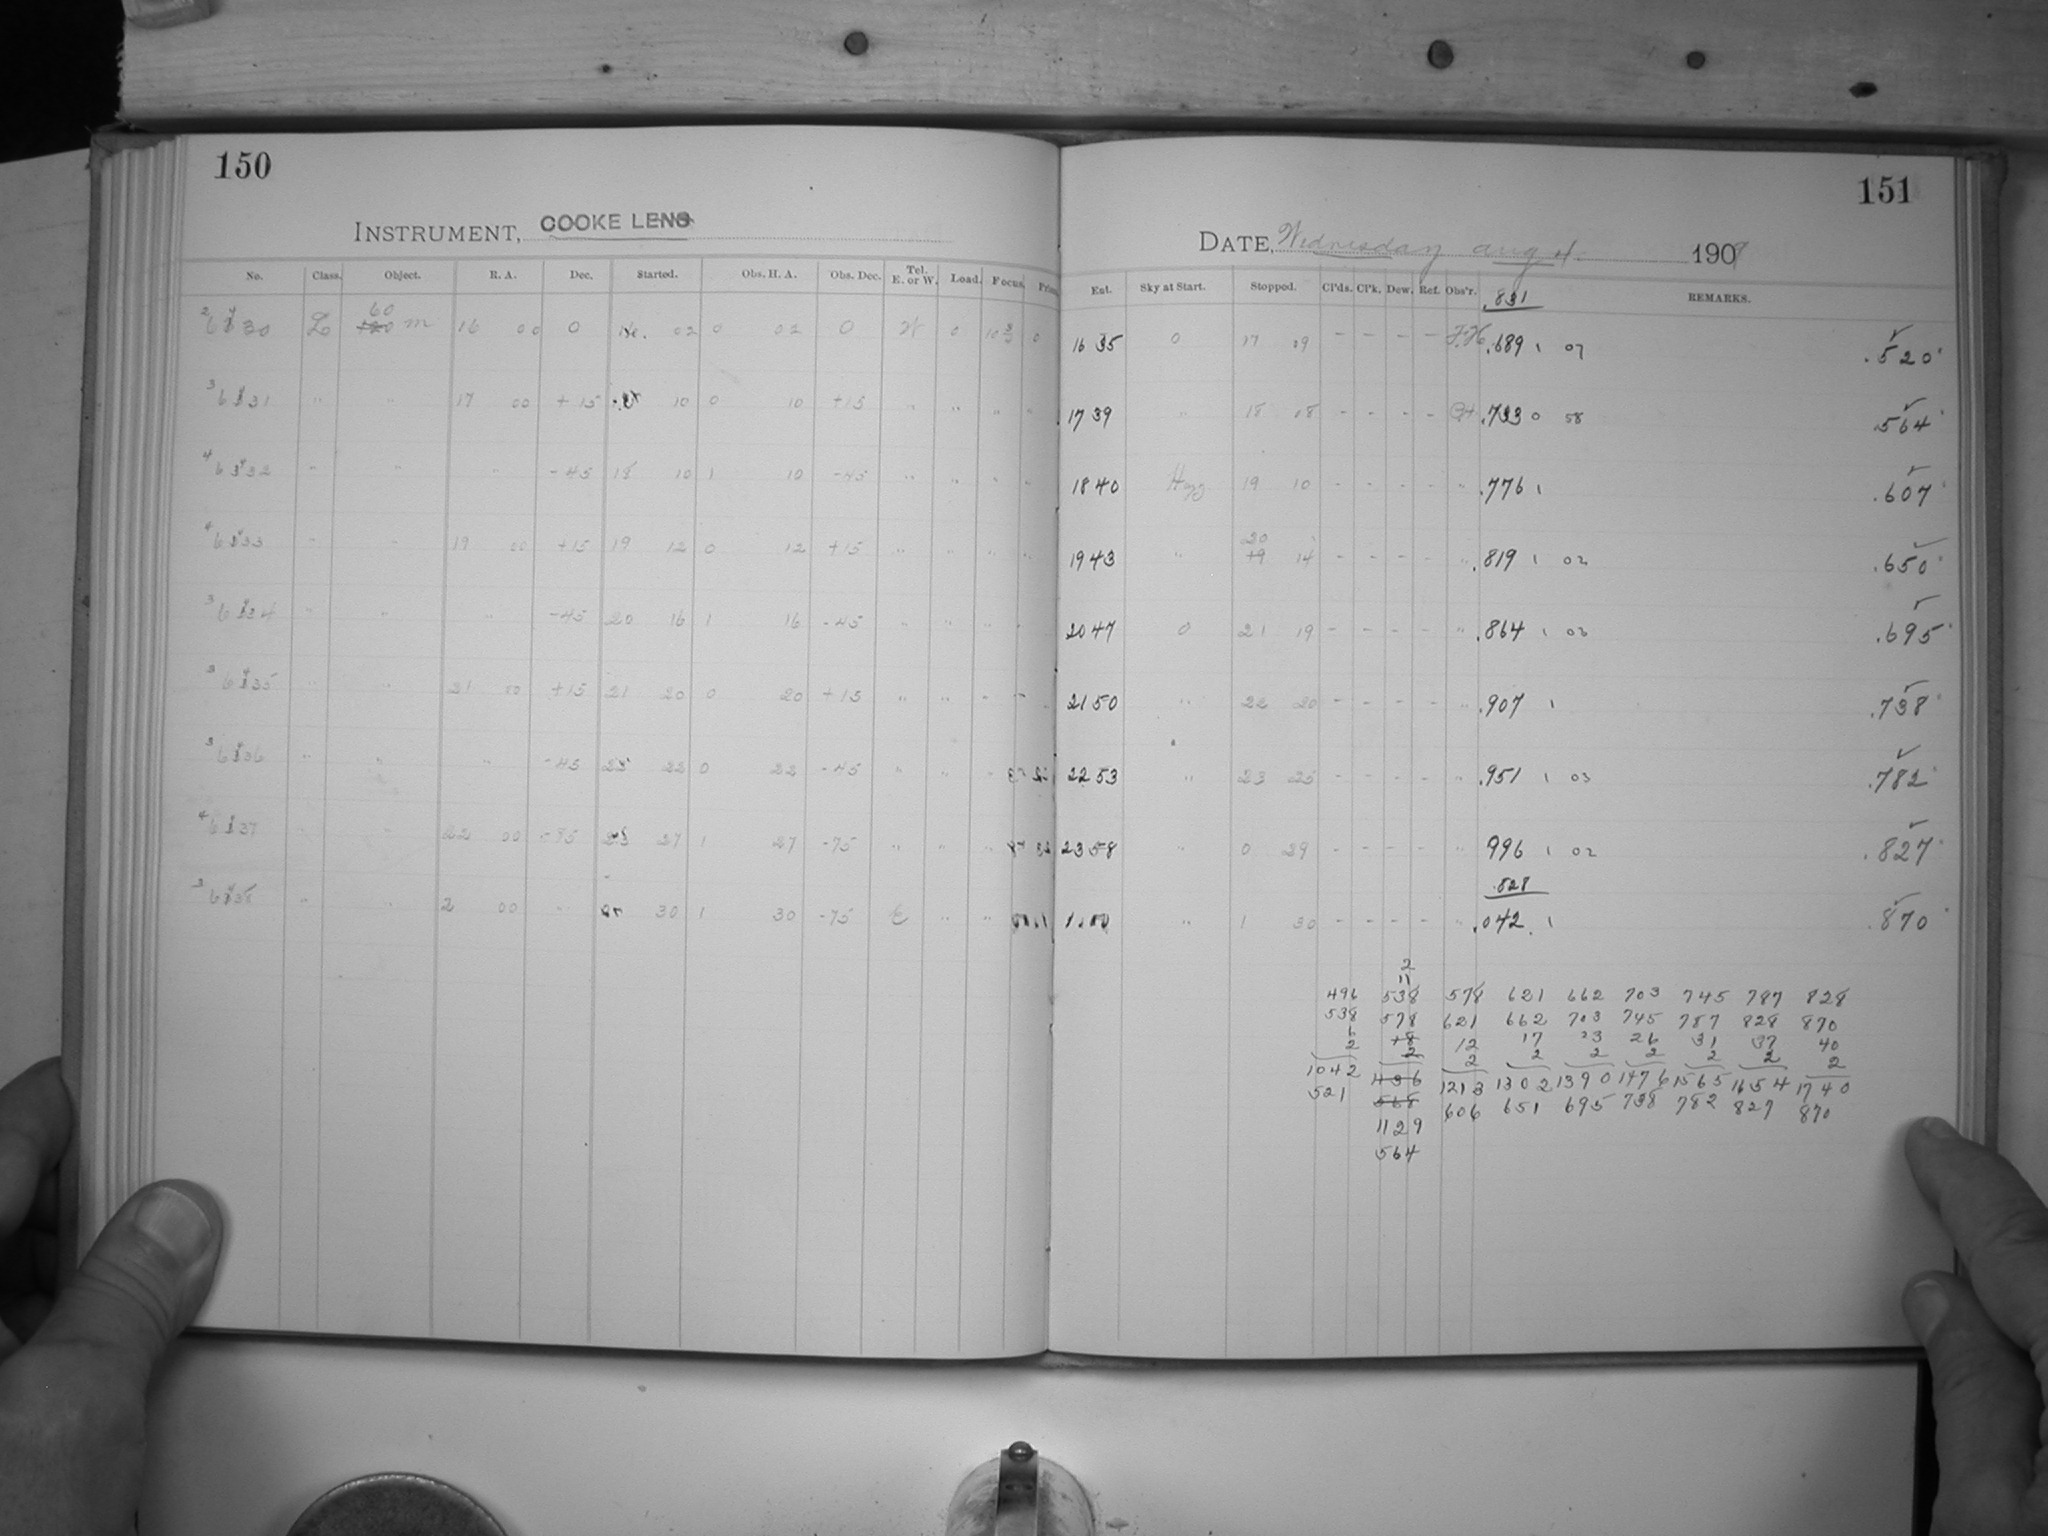 150
151
INSTRUMENT, COOKE LENS
DATE, Wednesday Aug 4. 1909
No. Class. Object. R. A. Dec. Started. Obs. H. A. Obs. Dec. Tel. E. or W. Load. Focus. Ent. Sky at Start. Stopped. Cl'ds. Cl'k. Dew. Ref. Obs'r. REMARKS.
.831
60
L 120 m 16 00 0 16. 02 0 02 0 W 0 0 16 35 0 17 09 - - - - .689 1 07 .520
" " 17 00 +15 10 0 10 +15 " " " " 17 39 " 18 08 - - - - .733 0 58 .564
" " " -45 18 10 1 10 -45 " " " " 18 40 Hazy 19 10 - - - - " .776 1 .607
20
" " 19 00 +15 19 12 0 12 +15 " " " " 19 43 " 19 14 - - - - " .819 1 02 .650
" " " -45 20 16 1 16 -45 " " " 20 47 0 21 19 - - - - " .864 1 03 .695
" " 21 00 +15 21 20 0 20 +15 " " 21 50 " 22 20 - - - - " .907 1 .738
" " " -45 22 0 22 -45 " " 22 53 " 23 25 - - - - " .951 1 03 .782
" " 22 00 27 1 27 -75 " " " 23 58 " 0 29 - - - - " 996 1 02 .827
.828
" " 2 00 " 30 1 30 -75 E " " " 1 30 - - - - " .042 1 .870
2
11
496 538 578 621 662 703 745 787 828
538 578 621 662 703 745 787 828 870
6 18 12 17 23 26 31 37 40
2 2 2 2 2 2 2 2 2
1042 1136 1213 1302 1390 1476 1565 1654 1740
521 568 606 651 695 738 782 827 870
1129
564